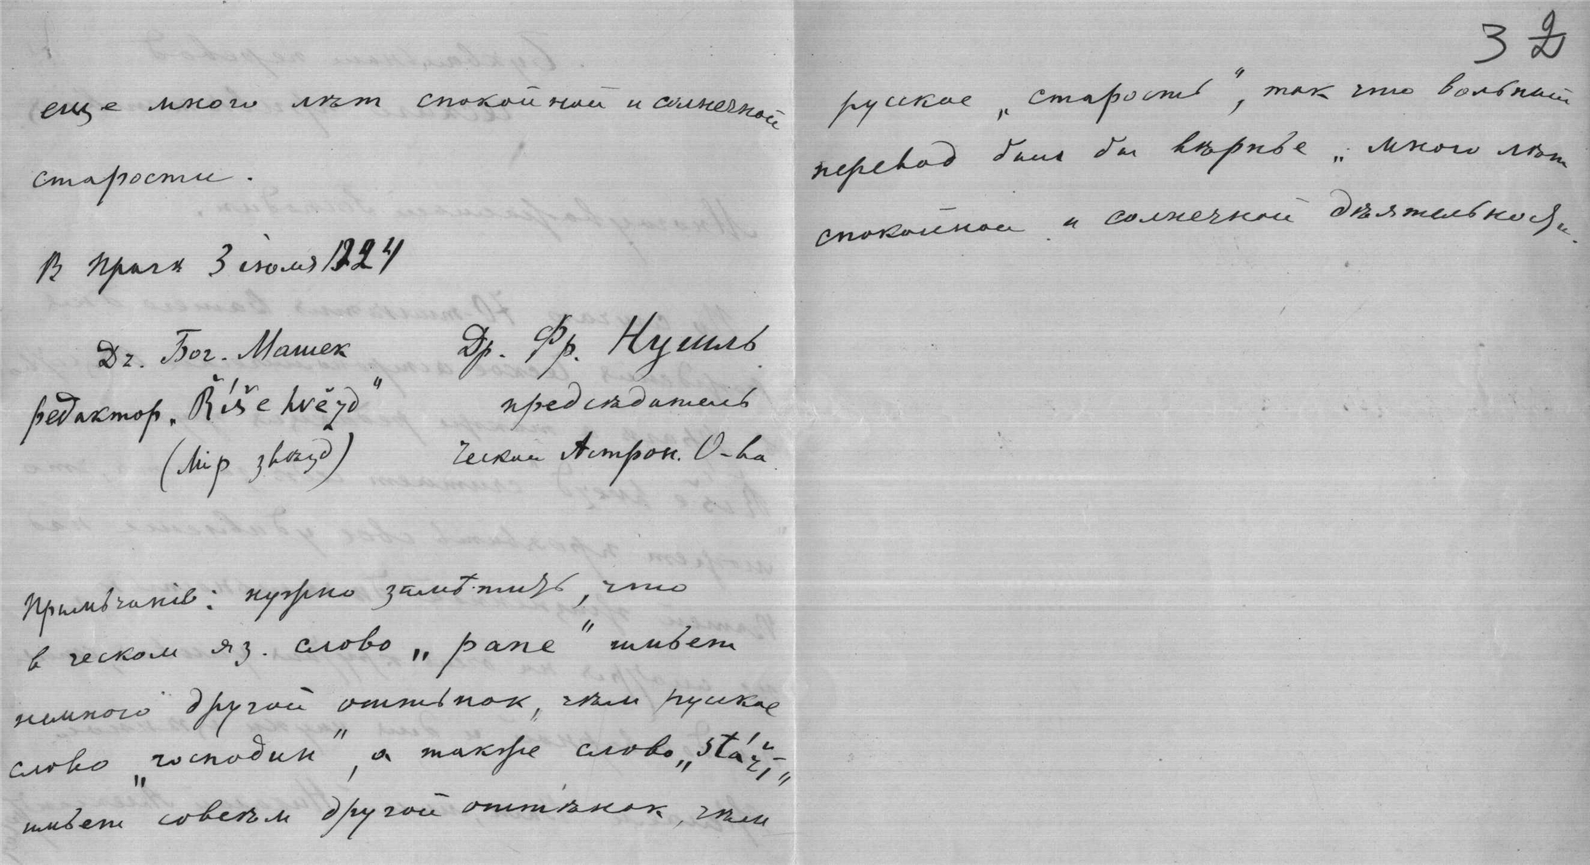 еще много лѣт спокойной и солнечной
старости.
В Прагѣ 3 iюля 1924
Др. Бог. Машек
Др. Фр. Нушль
редактор „Říše hvězd“
предсѣдатель
(Мiр звѣзд)
Ческой Астрон. О-ва
Примѣчанiе: нужно замѣтить, что
в ческом яз. слово „pane“ имѣет
немного другой оттѣнок, чѣм русское
слово „господин“, а также слово „stáří“
имѣет совсѣм другой оттѣнок, чѣм
32
русское „старость“, так что вольный
перевод был бы вѣрнѣе „много лѣт
спокойной и солнечной дѣятельности.